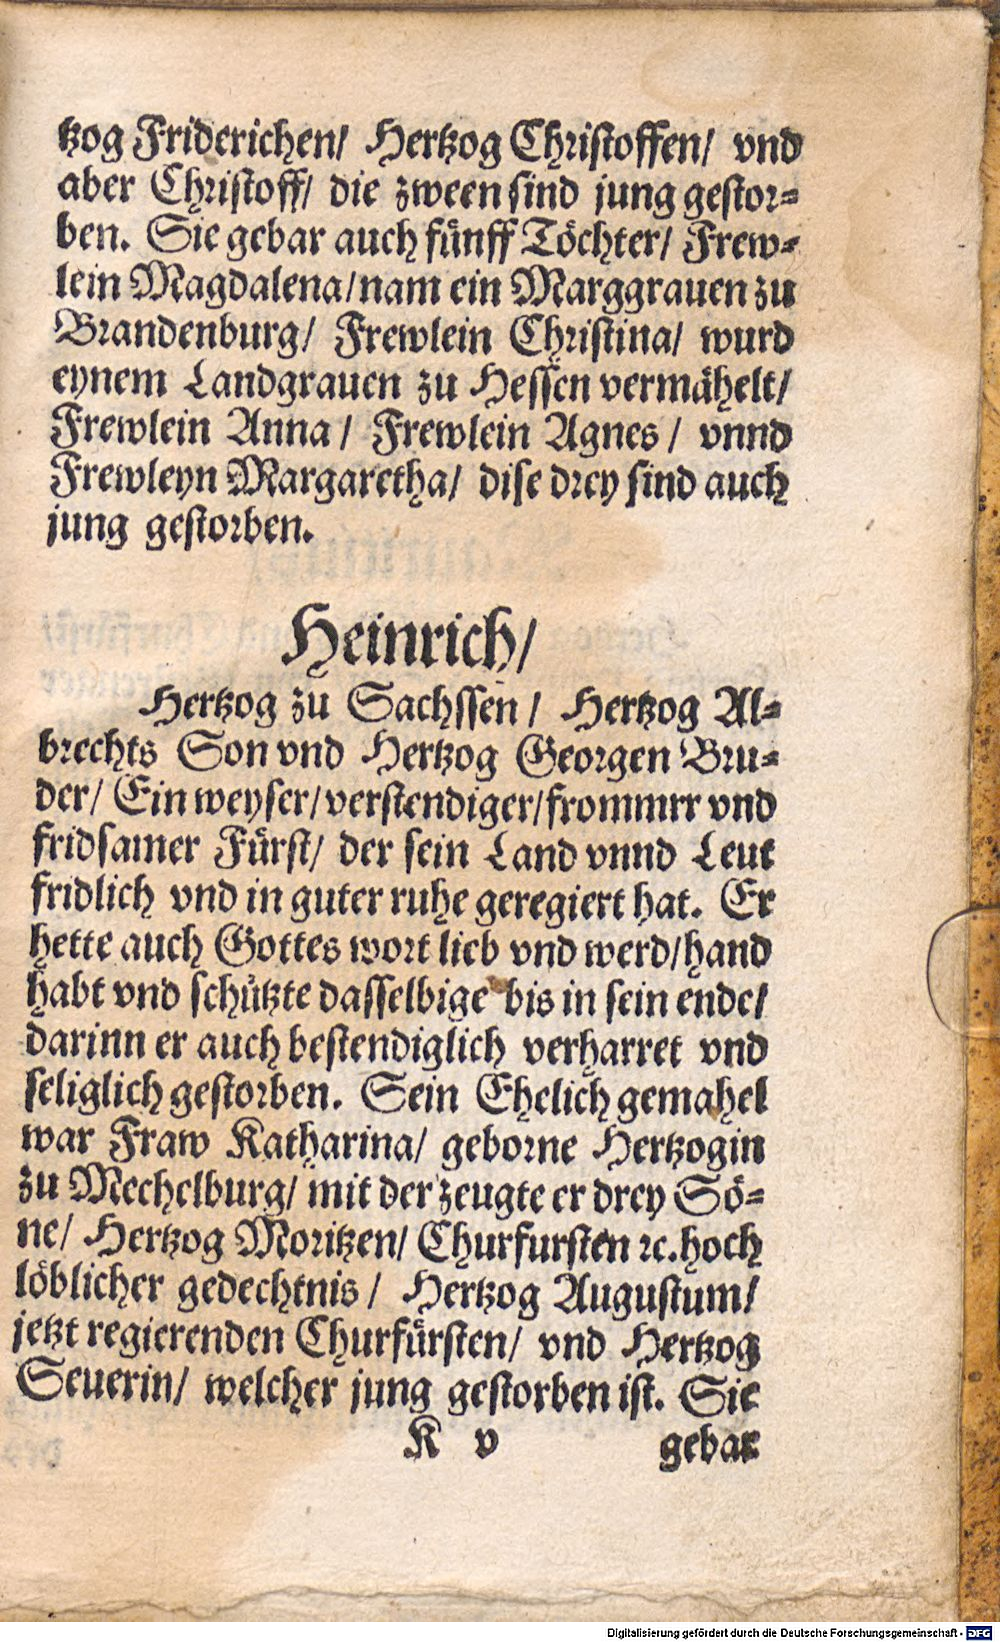 tzog Friderichen/ Hertzog Christoffen/ vnd
aber Christoff/ die zween sind jung gestor⸗
ben. Sie gebar auch fünff Töchter/ Frew⸗
lein Magdalena/nam ein Marggrauen zu
Brandenburg/ Frewlein Christina/ wurd
eynem Landgrauen zu Hessen vermähelt/
Frewlein Anna/ Frewlein Agnes/ vnnd
Frewleyn Margaretha/ dise drey sind auch
jung gestorben.
Heinrich/
Hertzog zu Sachssen/ Hertzog Al⸗
brechts Son vnd Hertzog Georgen Bru⸗
der/ Ein weyser/verstendiger/frommrr vnd
fridsamer Fürst/ der sein Land vnnd Leut
fridlich vnd in guter ruhe geregiert hat. Er
hette auch Gottes wort lieb vnd werd/hand
habt vnd schützte dasselbige bis in sein ende/
darinn er auch bestendiglich verharret vnd
seliglich gestorben. Sein Ehelich gemahel
war Fraw Katharina/ geborne Hertzogin
zu Mechelburg/ mit der zeugte er drey Sö⸗
ne/ Hertzog Moritzen/ Churfursten ꝛc. hoch
löblicher gedechtnis/ Hertzog Augustum/
jetzt regierenden Churfürsten/ vnd Hertzog
Seuerin/ welcher jung gestorben ist. Sie
K v gebar
Digitalisierung gefördert durch die Deutsche Forschungsgemeinschaft - DFG